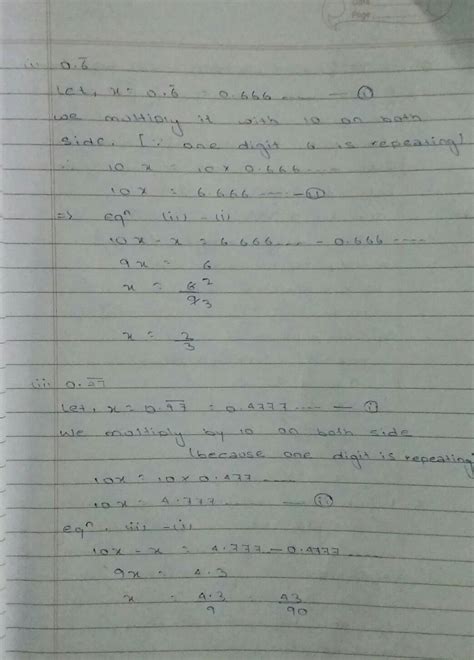 (i) 0.6̅
Let, x = 0.6̅ = 0.666 ..... — ①
We multiply it with 10 on both
side. [∵ one digit 6 is repeating]
∴ 10 x = 10 × 0.666 .....
10 x = 6.666 ..... — ②
⇒ eqⁿ (ii) - (i)
10x - x = 6.666 .... - 0.666 .....
9x = 6
x = 6 2 / 9 3
x = 2/3
(ii) 0.4̅7̅
Let, x = 0.4̅7̅ = 0.4777 ..... — ①
We multiply by 10 on both side
(because one digit is repeating)
10x = 10 × 0.477 .....
10x = 4.777 ..... — ②
eqⁿ. (ii) - (i)
10x - x = 4.777 - 0.4777 .....
9x = 4.3
x = 4.3/9 43/90